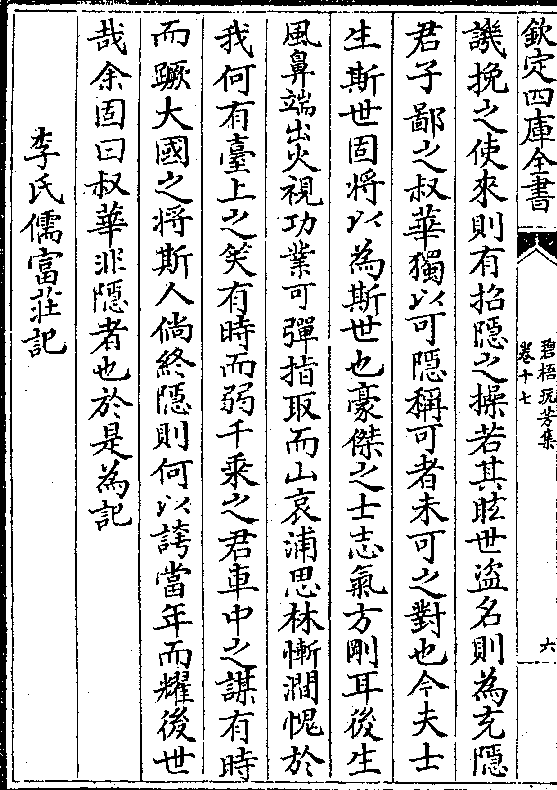 欽定四庫全書
碧梧玩芳集
卷十七
六
譏挽之使來則有招隱之操若其眩世盜名則為充隱
君子鄙之叔華獨以可隱稱可者未可之對也今夫士
生斯世固將以為斯世也豪傑之士志氣方剛耳後生
風鼻端出火視功業可彈指取而山哀浦思林慚澗愧於
我何有臺上之笑有時而弱千乘之君車中之謀有時
而蹶大國之將斯人倘終隱則何以誇當年而耀後世
哉余固曰叔華非隱者也於是為記
李氏儒富莊記